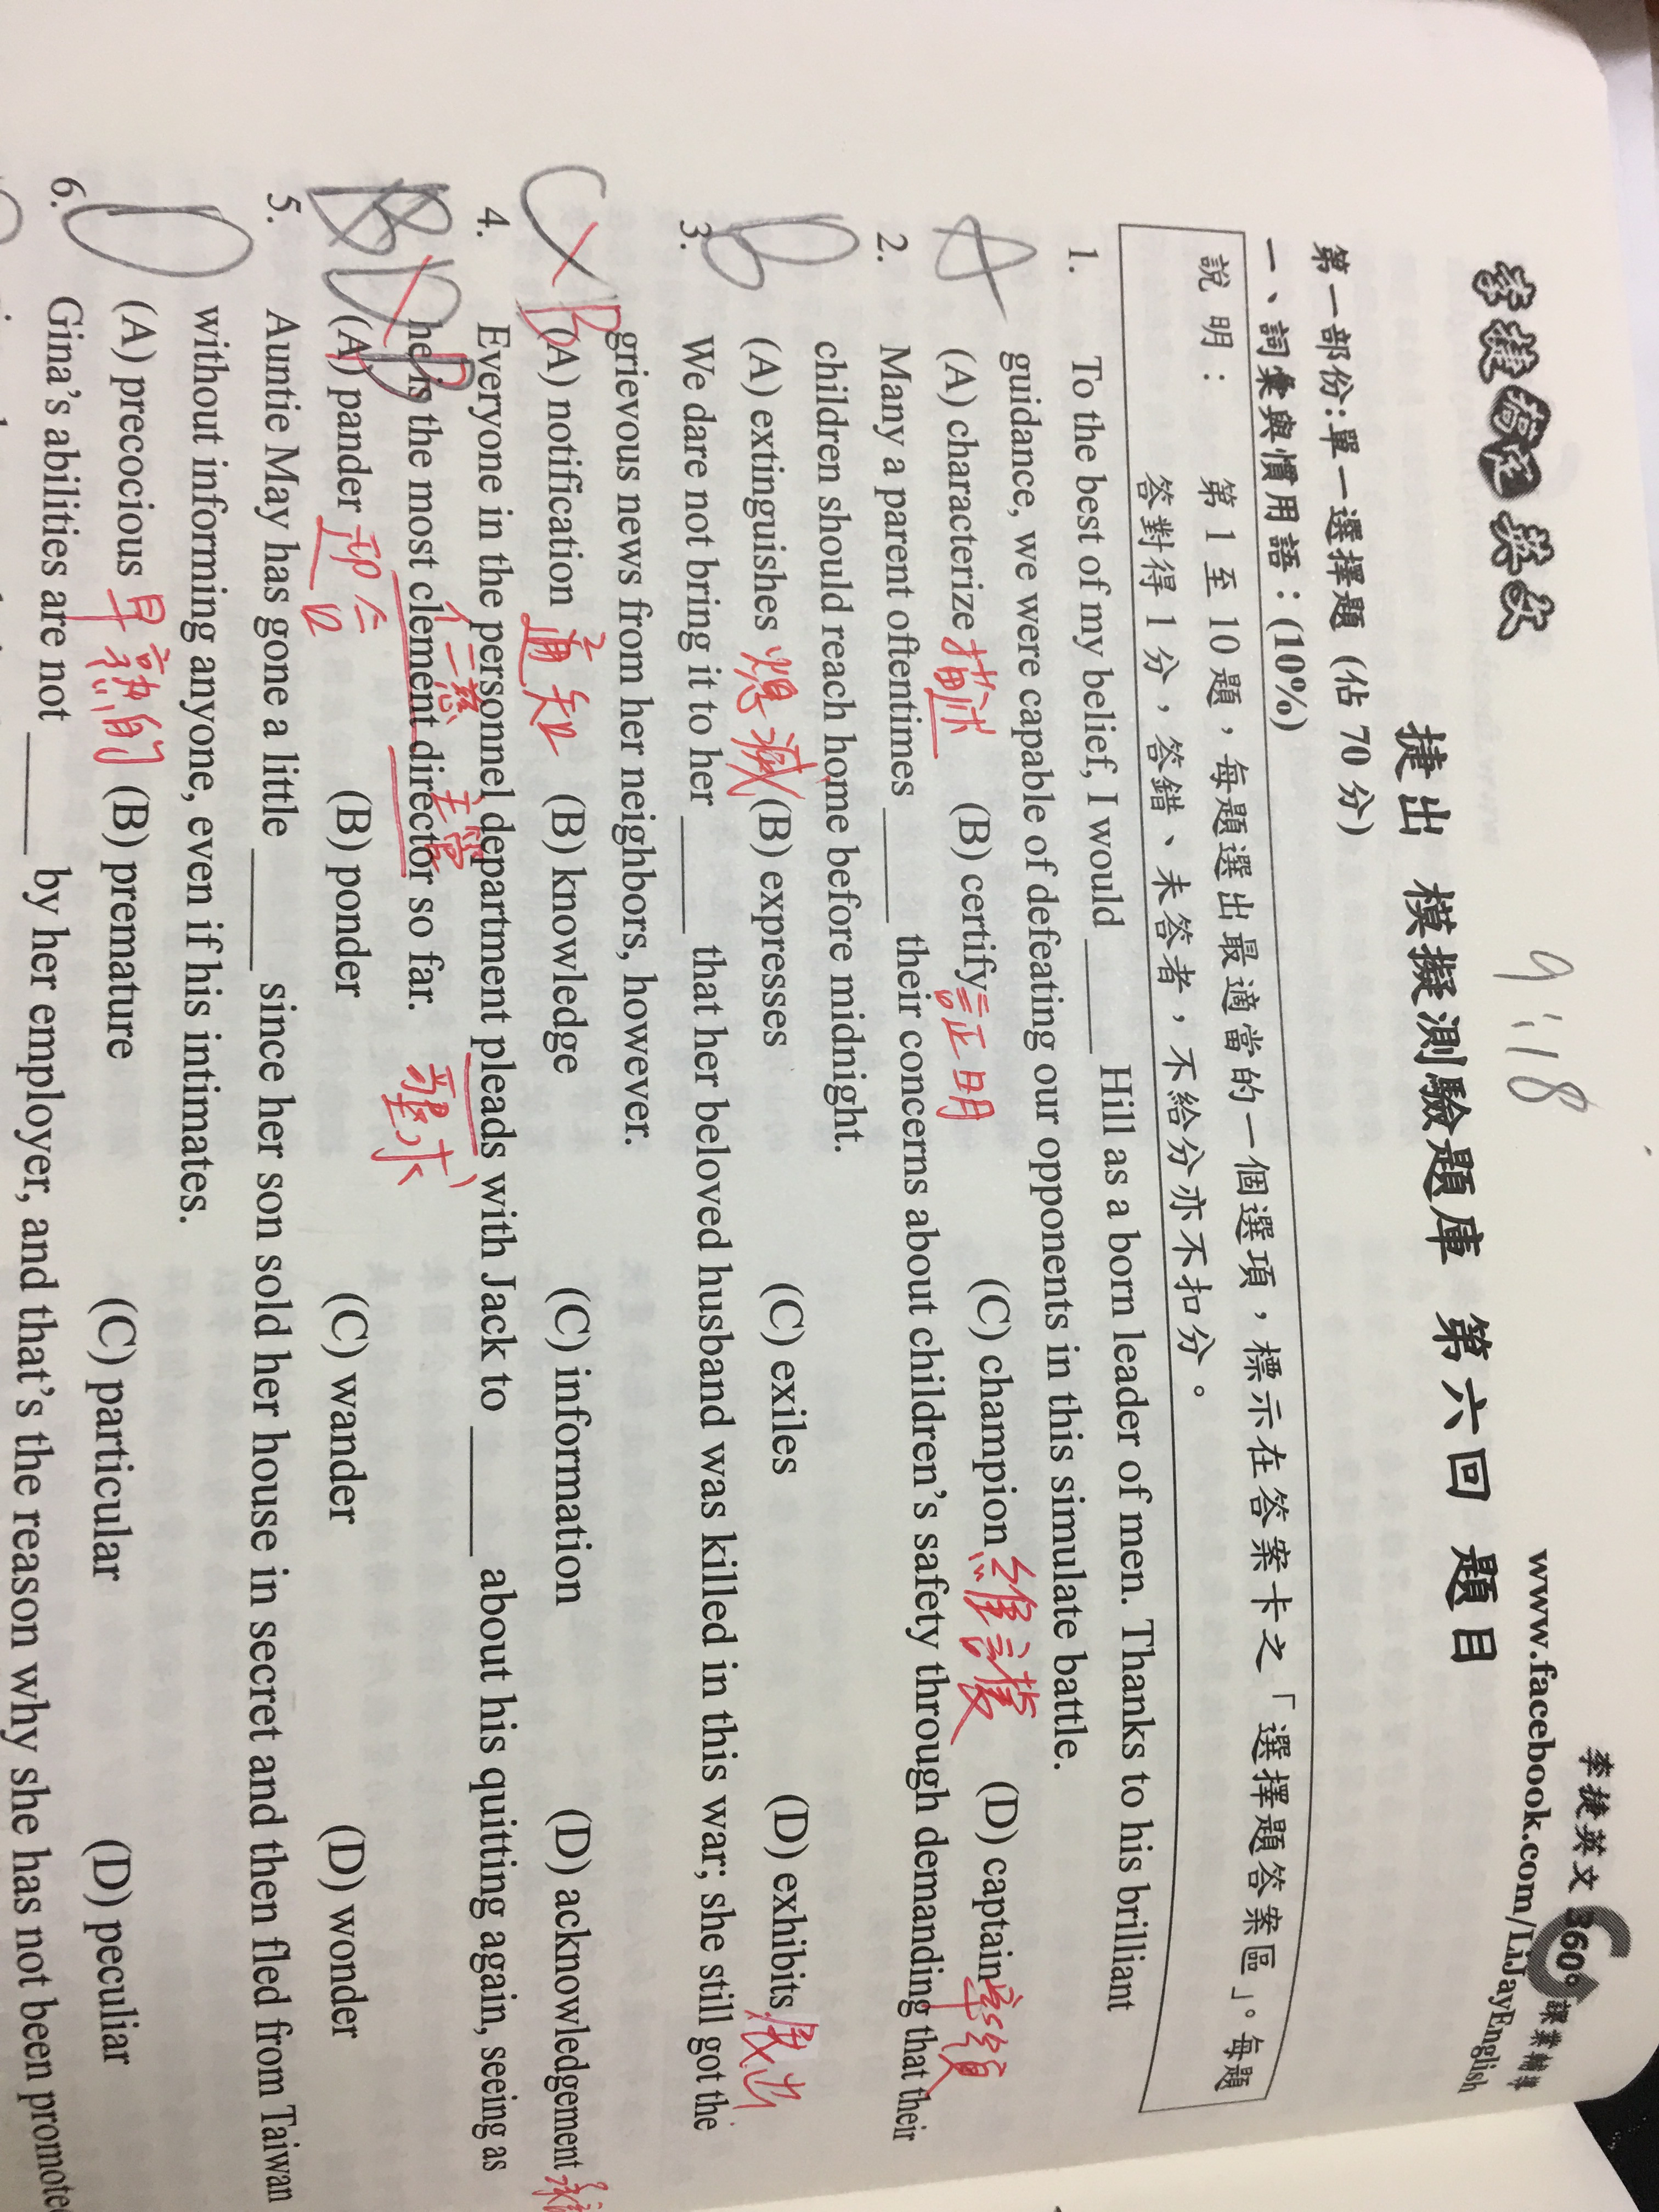 李捷英文 360° 課業輔導
www.facebook.com/LiJayEnglish
9:18
捷出 模擬測驗題庫 第六回 題目
第一部份:單一選擇題 (佔 70 分)
一、詞彙與慣用語：(10%)
說 明： 第 1 至 10 題，每題選出最適當的一個選項，標示在答案卡之「選擇題答案區」。每題
答對得 1 分，答錯、未答者，不給分亦不扣分。
1. To the best of my belief, I would ______ Hill as a born leader of men. Thanks to his brilliant
guidance, we were capable of defeating our opponents in this simulate battle.
A (A) characterize 描述 (B) certify 證明 (C) champion 維護 (D) captain 率領
2. Many a parent oftentimes ______ their concerns about children's safety through demanding that their
children should reach home before midnight.
B (A) extinguishes 熄滅 (B) expresses (C) exiles (D) exhibits 展出
3. We dare not bring it to her ______ that her beloved husband was killed in this war; she still got the
grievous news from her neighbors, however.
C B (A) notification 通知 (B) knowledge (C) information (D) acknowledgement
4. Everyone in the personnel department pleads with Jack to ______ about his quitting again, seeing as
仁慈 主管 懇求
he is the most clement director so far.
B D B (A) pander 迎合 (B) ponder (C) wander (D) wonder
5. Auntie May has gone a little ______ since her son sold her house in secret and then fled from Taiwan
without informing anyone, even if his intimates.
D (A) precocious 早熟的 (B) premature (C) particular (D) peculiar
6. Gina's abilities are not ______ by her employer, and that's the reason why she has not been promoted